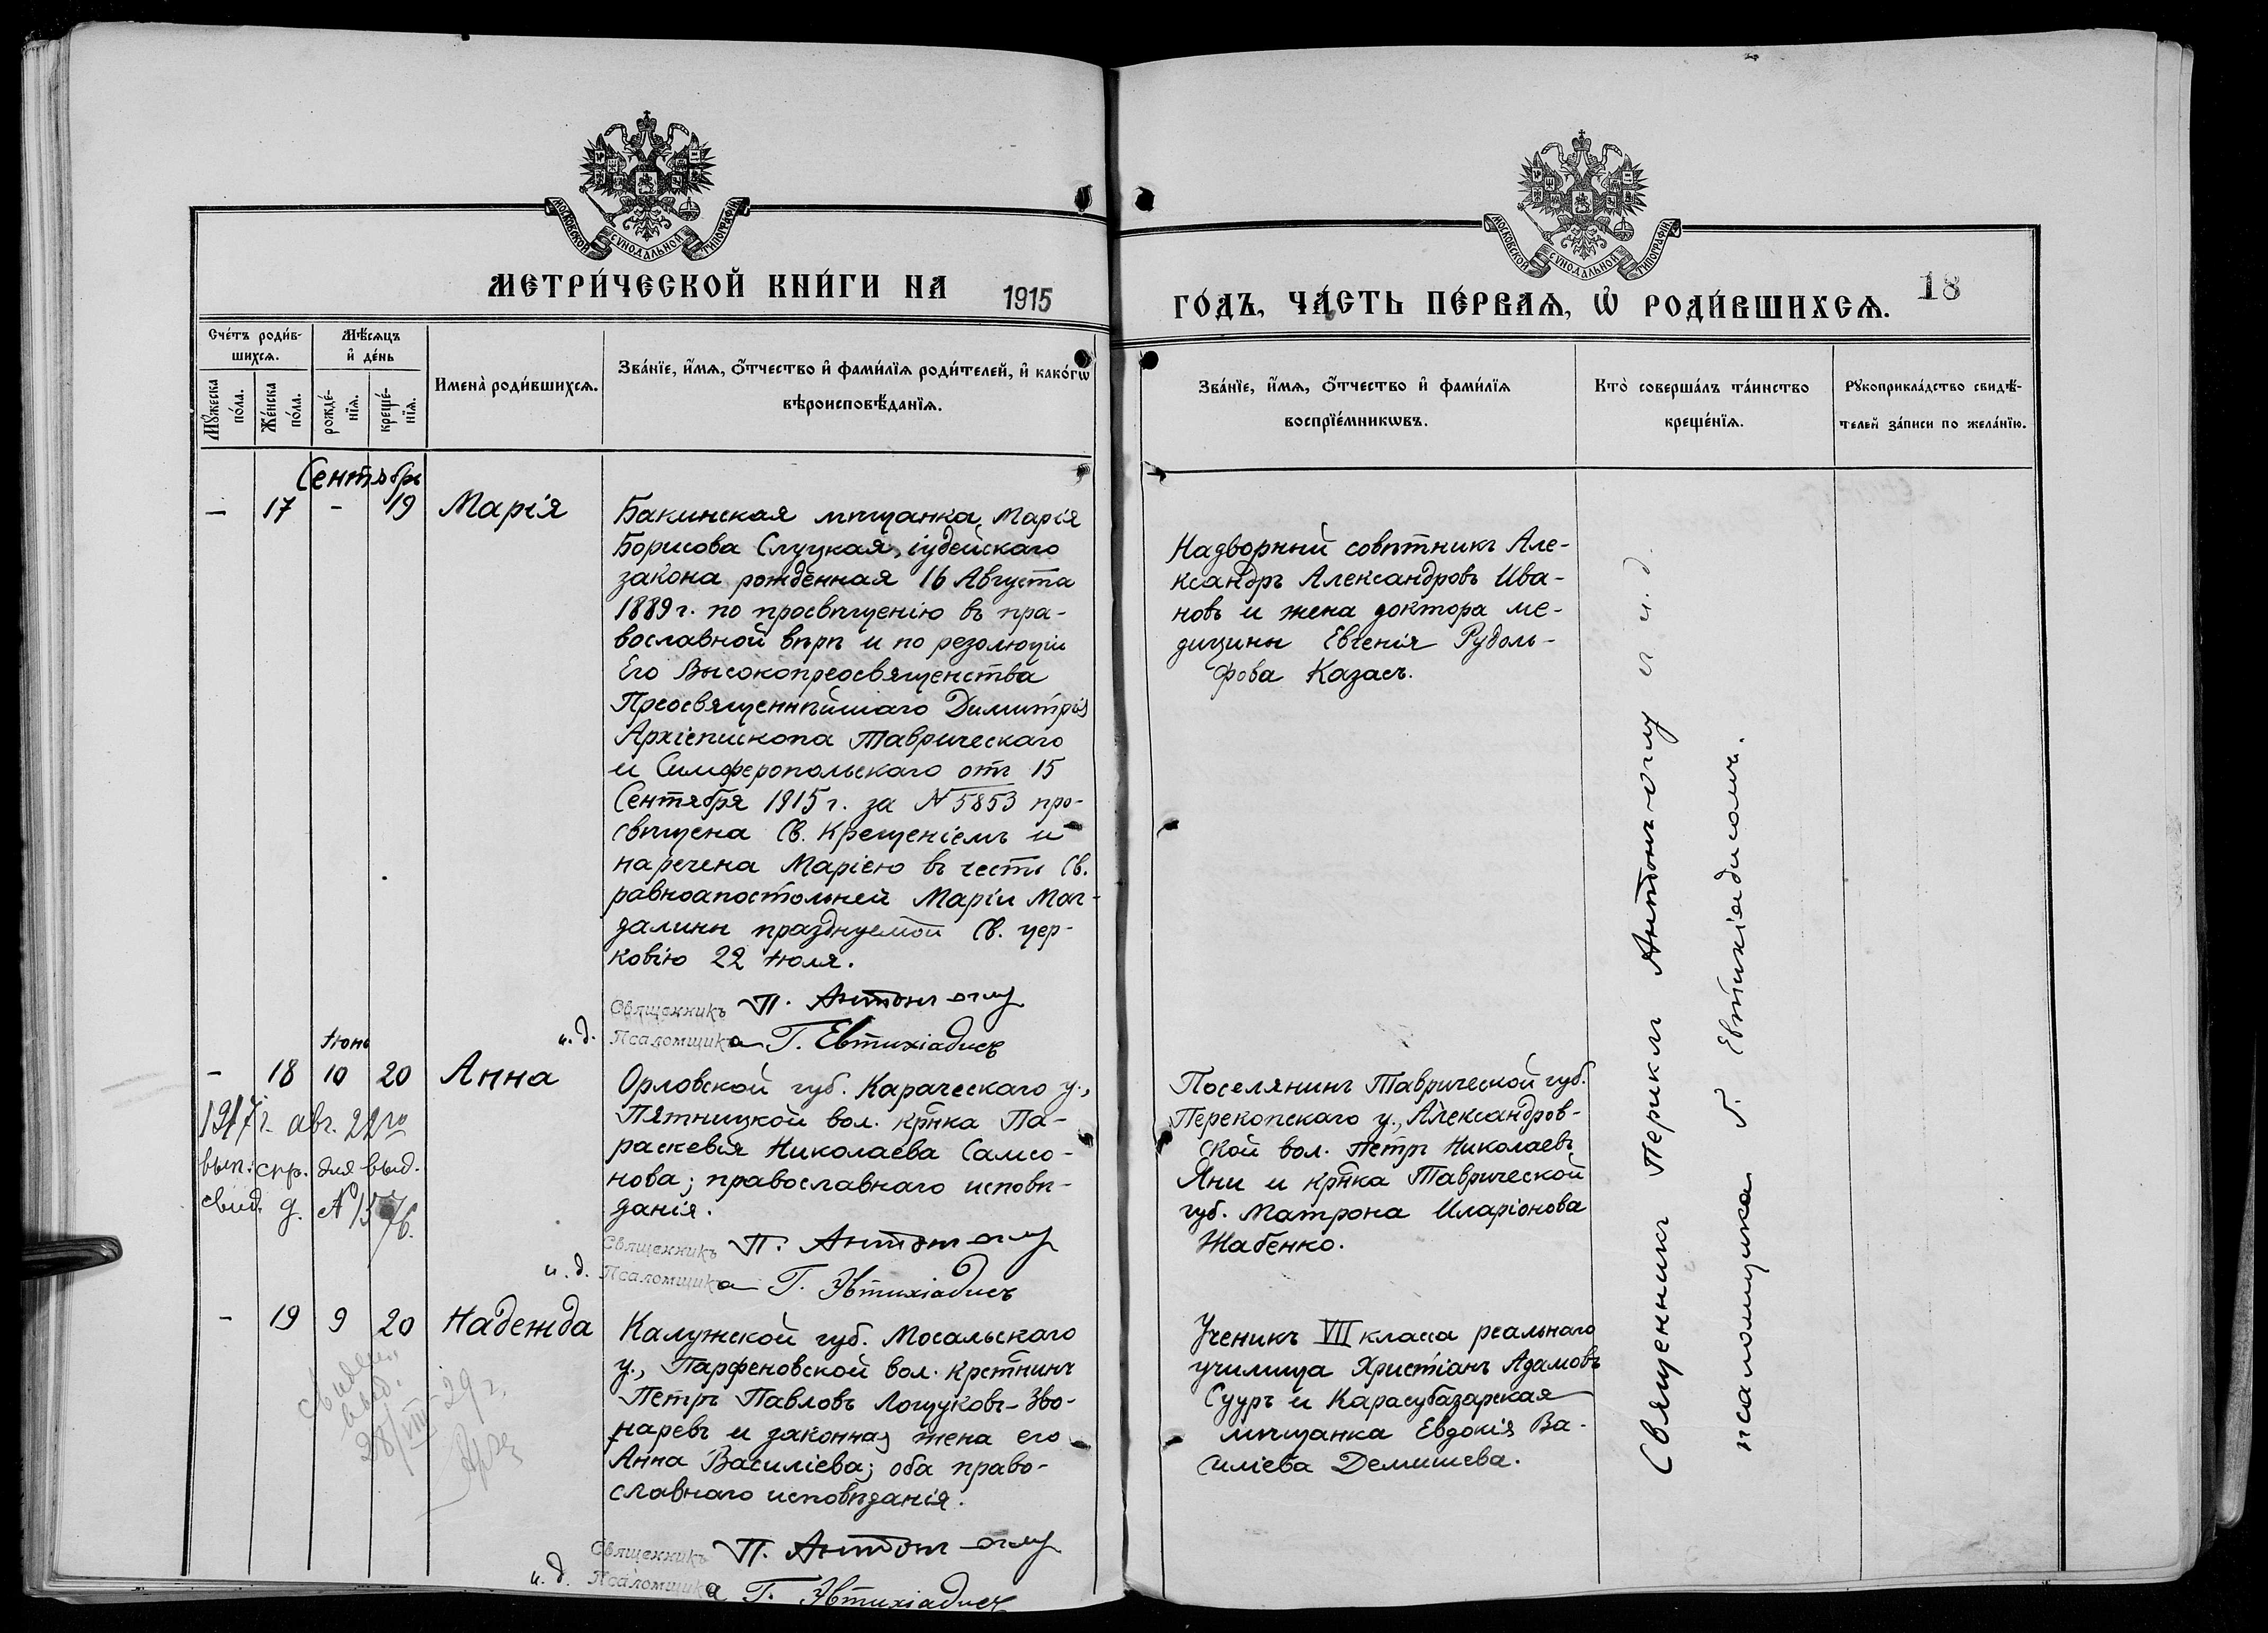 МОСКОВСКОЙ СУНОДАЛЬНОЙ ТИПОГРАФІИ
МЕТРИ́ЧЕСКОЙ КНИ́ГИ НА 1915
Сче́тъ роди́в-
шихсѧ.
Мѣ́сѧцъ
и҆ де́нь
Мꙋ́жеска
по́ла.
Же́нска
по́ла.
рожде́-
нїѧ.
креще́-
нїѧ.
Имена̀ роди́вшихсѧ.
Зва́нїе, и҆́мѧ, ѻ҆́тчество и҆ фами́лїѧ роди́телей, и҆ како́гѡ
вѣроисповѣ́данїѧ.
Сентябрь
— 17 - 19 Марія
Бакинская мѣщанка Марія
Борисова Слуцкая, іудейскаго
закона рожденная 16 Августа
1889 г. по просвѣщенію въ пра-
вославной вѣрѣ и по резолюціи
Его Высокопреосвященства
Преосвященнѣйшаго Димитрія
Архіепископа Таврическаго
и Симферопольскаго отъ 15
Сентября 1915 г. за № 5853 про-
свѣщена Св. Крещеніемъ и
наречена Маріею въ честь Св.
равноапостольней Маріи Маг-
далины празднуемой Св. цер-
ковію 22 Іюля.
Священникъ П. Антонъ-оглу
и.д. Псаломщика Г. Евтихіадисъ
Іюнь
- 18 10 20 Анна
1917 г. авг. 22го
вып. спр. для выд.
свид. д. № 1576.
Орловской губ. Карачевскаго у.,
Пятницкой вол. кр̃нка Па-
раскевія Николаева Самсо-
нова; православнаго исповѣ-
данія.
Священникъ П. Антонъ-оглу
и.д. Псаломщика Г. Эвтихіадисъ
- 19 9 20 Надежда
свидет.
выд.
28/VIII-29 г.
Калужской губ. Мосальскаго
у., Парфеновской вол. крстнинъ
Петръ Павловъ Лощуковъ-Зво-
наревъ и законная жена его
Анна Василіева; оба право-
славнаго исповѣданія.
Священникъ П. Антонъ-оглу
и.д. Псаломщика Г. Эвтихіадисъ
МОСКОВСКОЙ СУНОДАЛЬНОЙ ТИПОГРАФІИ
ГО́ДЪ, ЧА́СТЬ ПЕ́РВАѦ, Ѽ РОДИ́ВШИХСѦ. 18
Зва́нїе, и҆́мѧ, ѻ҆́тчество и҆ фами́лїѧ
воспрїе́мникѡвъ.
Кто̀ соверша́лъ та́инство
креще́нїѧ.
Рꙋкоприкла́дство свидѣ́-
телей за́писи по жела́нїю.
Надворный совѣтникъ Але-
ксандръ Александровъ Ива-
новъ и жена доктора ме-
дицины Евгенія Рудоль-
фова Казасъ.
Поселянинъ Таврической губ.
Перекопскаго у., Александров-
ской вол. Петръ Николаевъ
Яни и кр̃нка Таврической
губ. Матрона Иларіонова
Жабенко.
Ученикъ VII класса реальнаго
училища Христіанъ Адамовъ
Сууръ и Карасубазарская
мѣщанка Евдокія Ва-
силіева Демишева.
Священникъ Периклъ Антонъ-оглу и и.д.
псаломщика Г. Евтихіадисомъ.